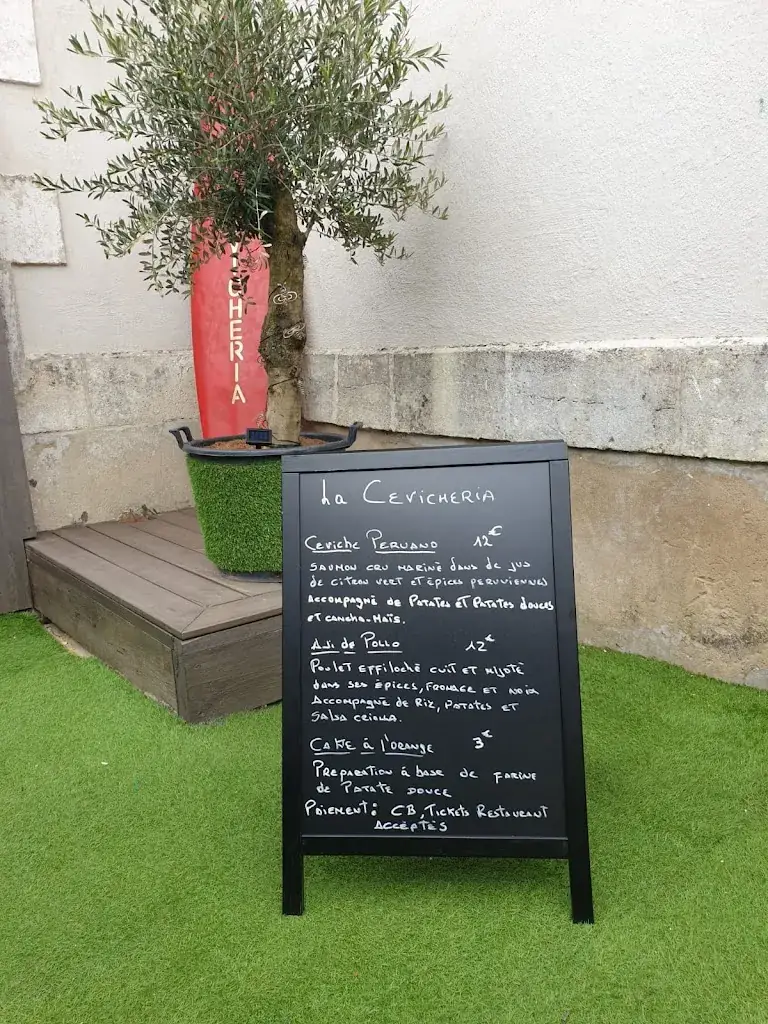 VICHERIA
La CEVICHERIA
Ceviche PERUANO 12€
SAUMON CRU MARINÉ dans de jus
de citron vert et épices peruviennes
Accompagné de Patates et Patates douces
et cancha-maïs.
Aji de Pollo 12€
Poulet effiloché cuit et mijoté
dans ses épices, fromage et noix
Accompagné de Riz, patates et
salsa criolla.
CAKE à l'orange 3€
Préparation à base de farine
de Patate douce
Paiement: CB, Tickets Restaurant
Acceptés